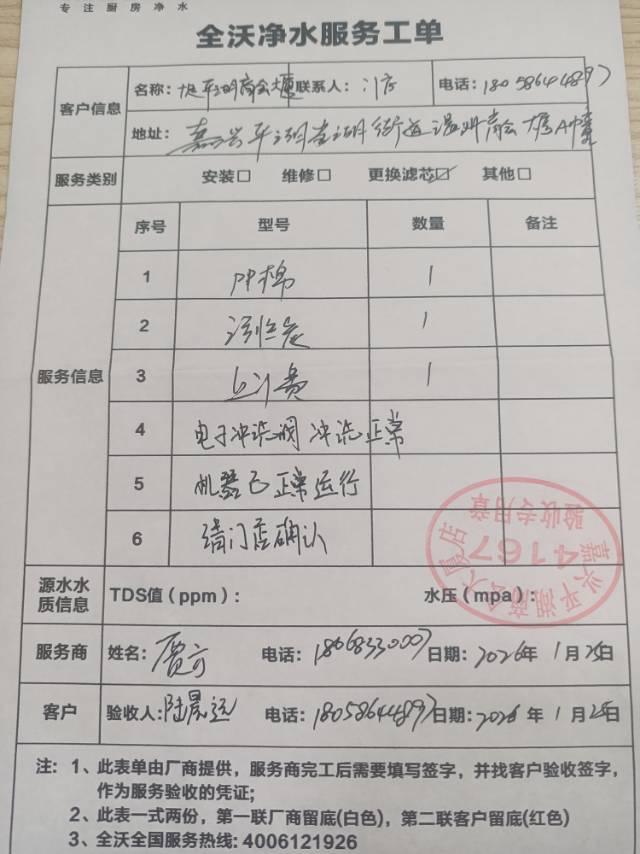 专注厨房净水
全沃净水服务工单
客户信息
名称: 平湖商会大厦 联系人: 门店 电话: 18058644897
地址: 嘉兴平湖当湖街道温州商会大厦A幢
服务类别 安装□ 维修□ 更换滤芯☑ 其他□
服务信息
序号 型号 数量 备注
1 PP棉 1
2 1
3 1
4 电子冲洗阀 冲洗正常
5 机器已正常运行
6 请门店确认
嘉兴平湖商会大厦店
4167
验收专用章
源水水质信息 TDS值(ppm): 水压(mpa):
服务商 姓名: 电话: 18068330007 日期: 2026年1月25日
客户 验收人: 陆晨远 电话: 18058644897 日期: 2026年1月25日
注: 1、此表单由厂商提供，服务商完工后需要填写签字，并找客户验收签字，
作为服务验收的凭证;
2、此表一式两份，第一联厂商留底(白色)，第二联客户留底(红色)
3、全沃全国服务热线: 4006121926